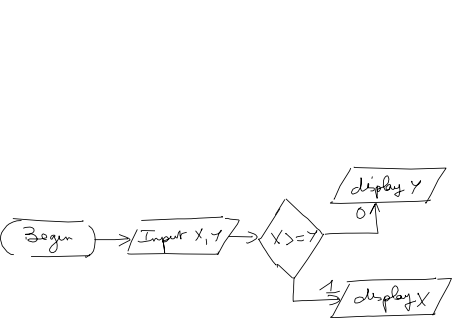 Begin
Input X, Y
X>=Y
display Y
0
1
display X